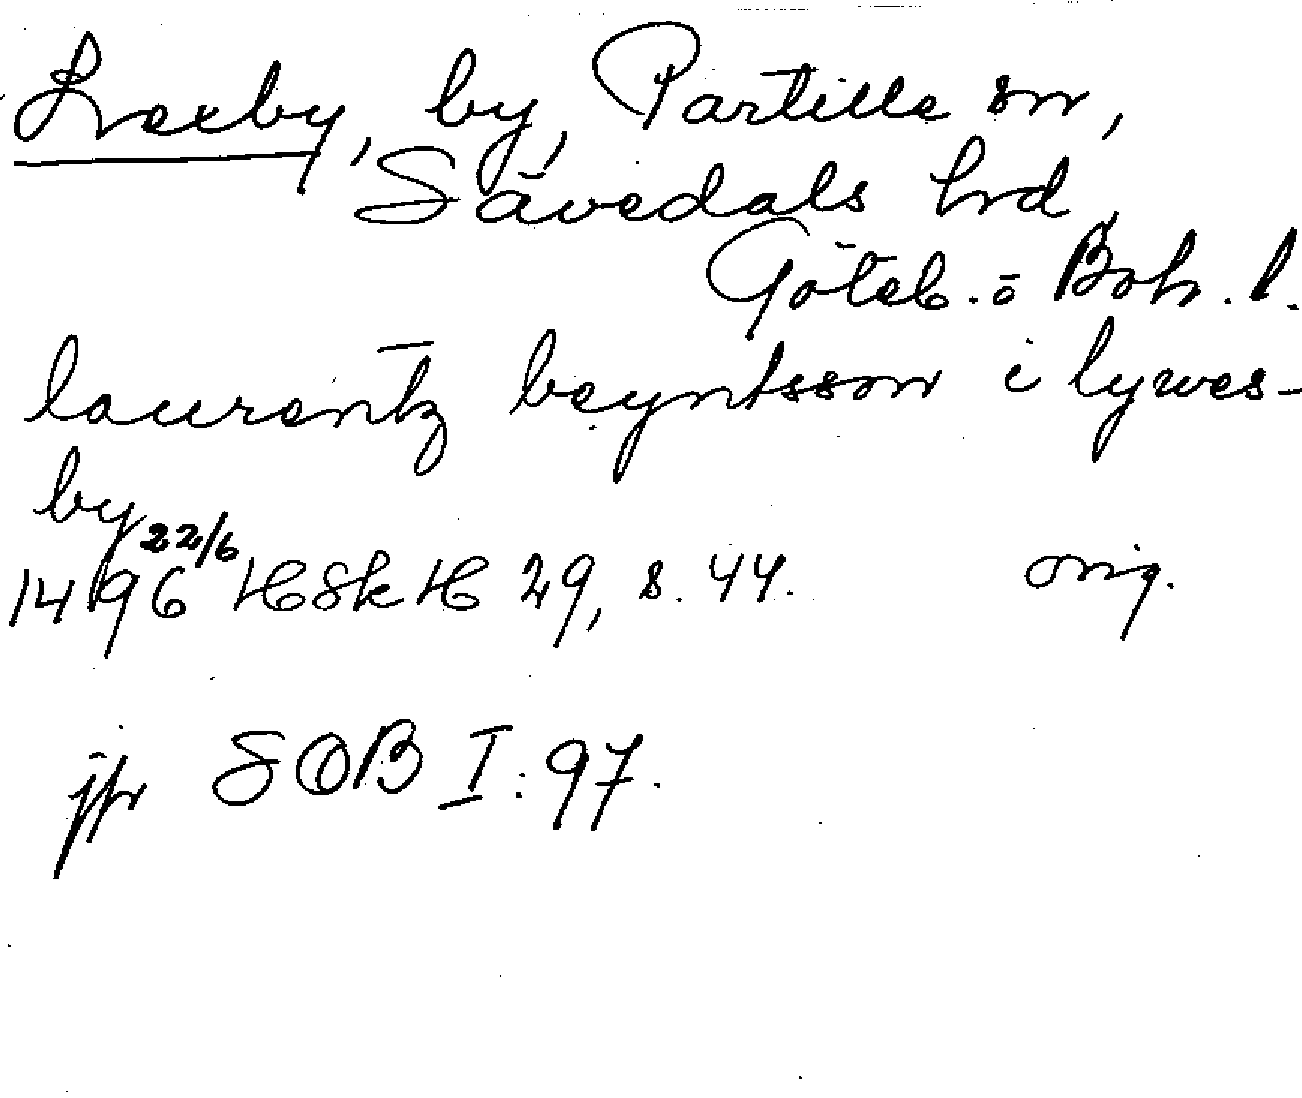 Lexby, by, Partille sn,
Sävedals hrd
Göteb. o Boh. l.
laurentz beyntsson i lywes-
by
1496 22/6 HSkH 29, s. 44. orig.
jfr SOB I: 97.